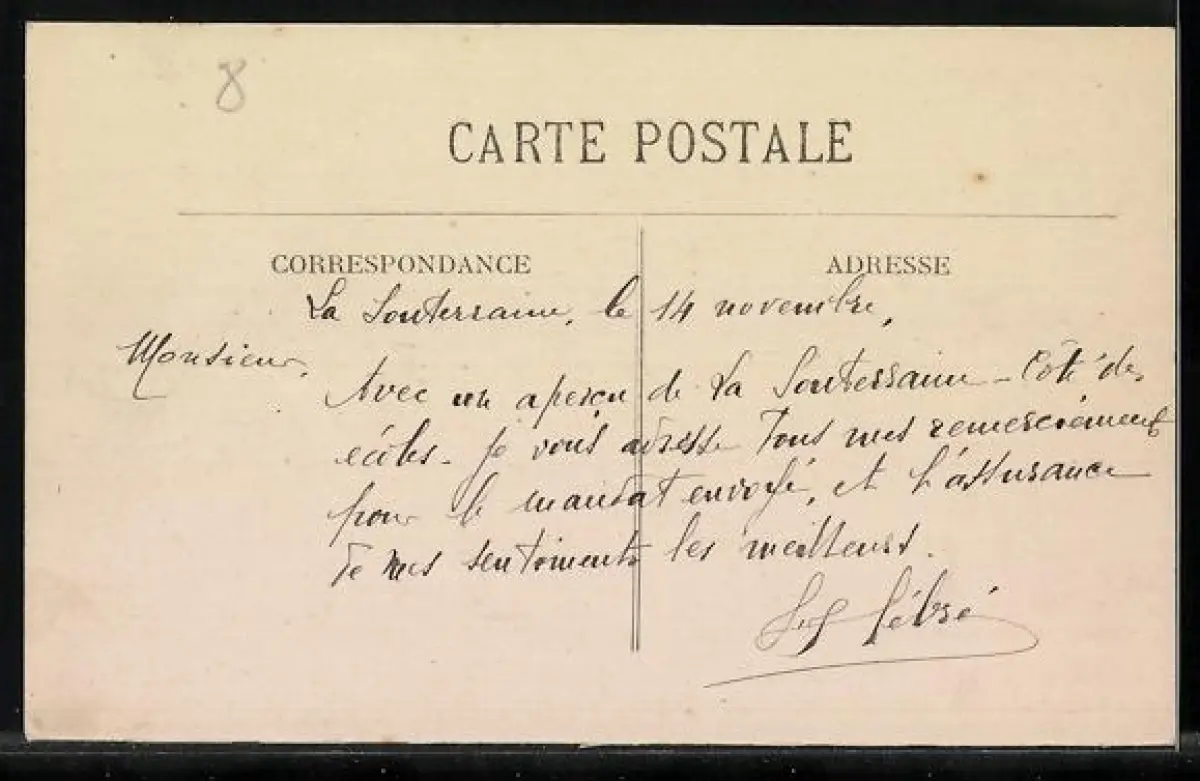 8
CARTE POSTALE
CORRESPONDANCE
ADRESSE
La Souterraine, le 14 novembre,
Monsieur,
Avec un aperçu de La Souterraine - Côté des
écoles - je vous adresse tous mes remerciements
pour le mandat envoyé, et l'assurance
de mes sentiments les meilleurs.